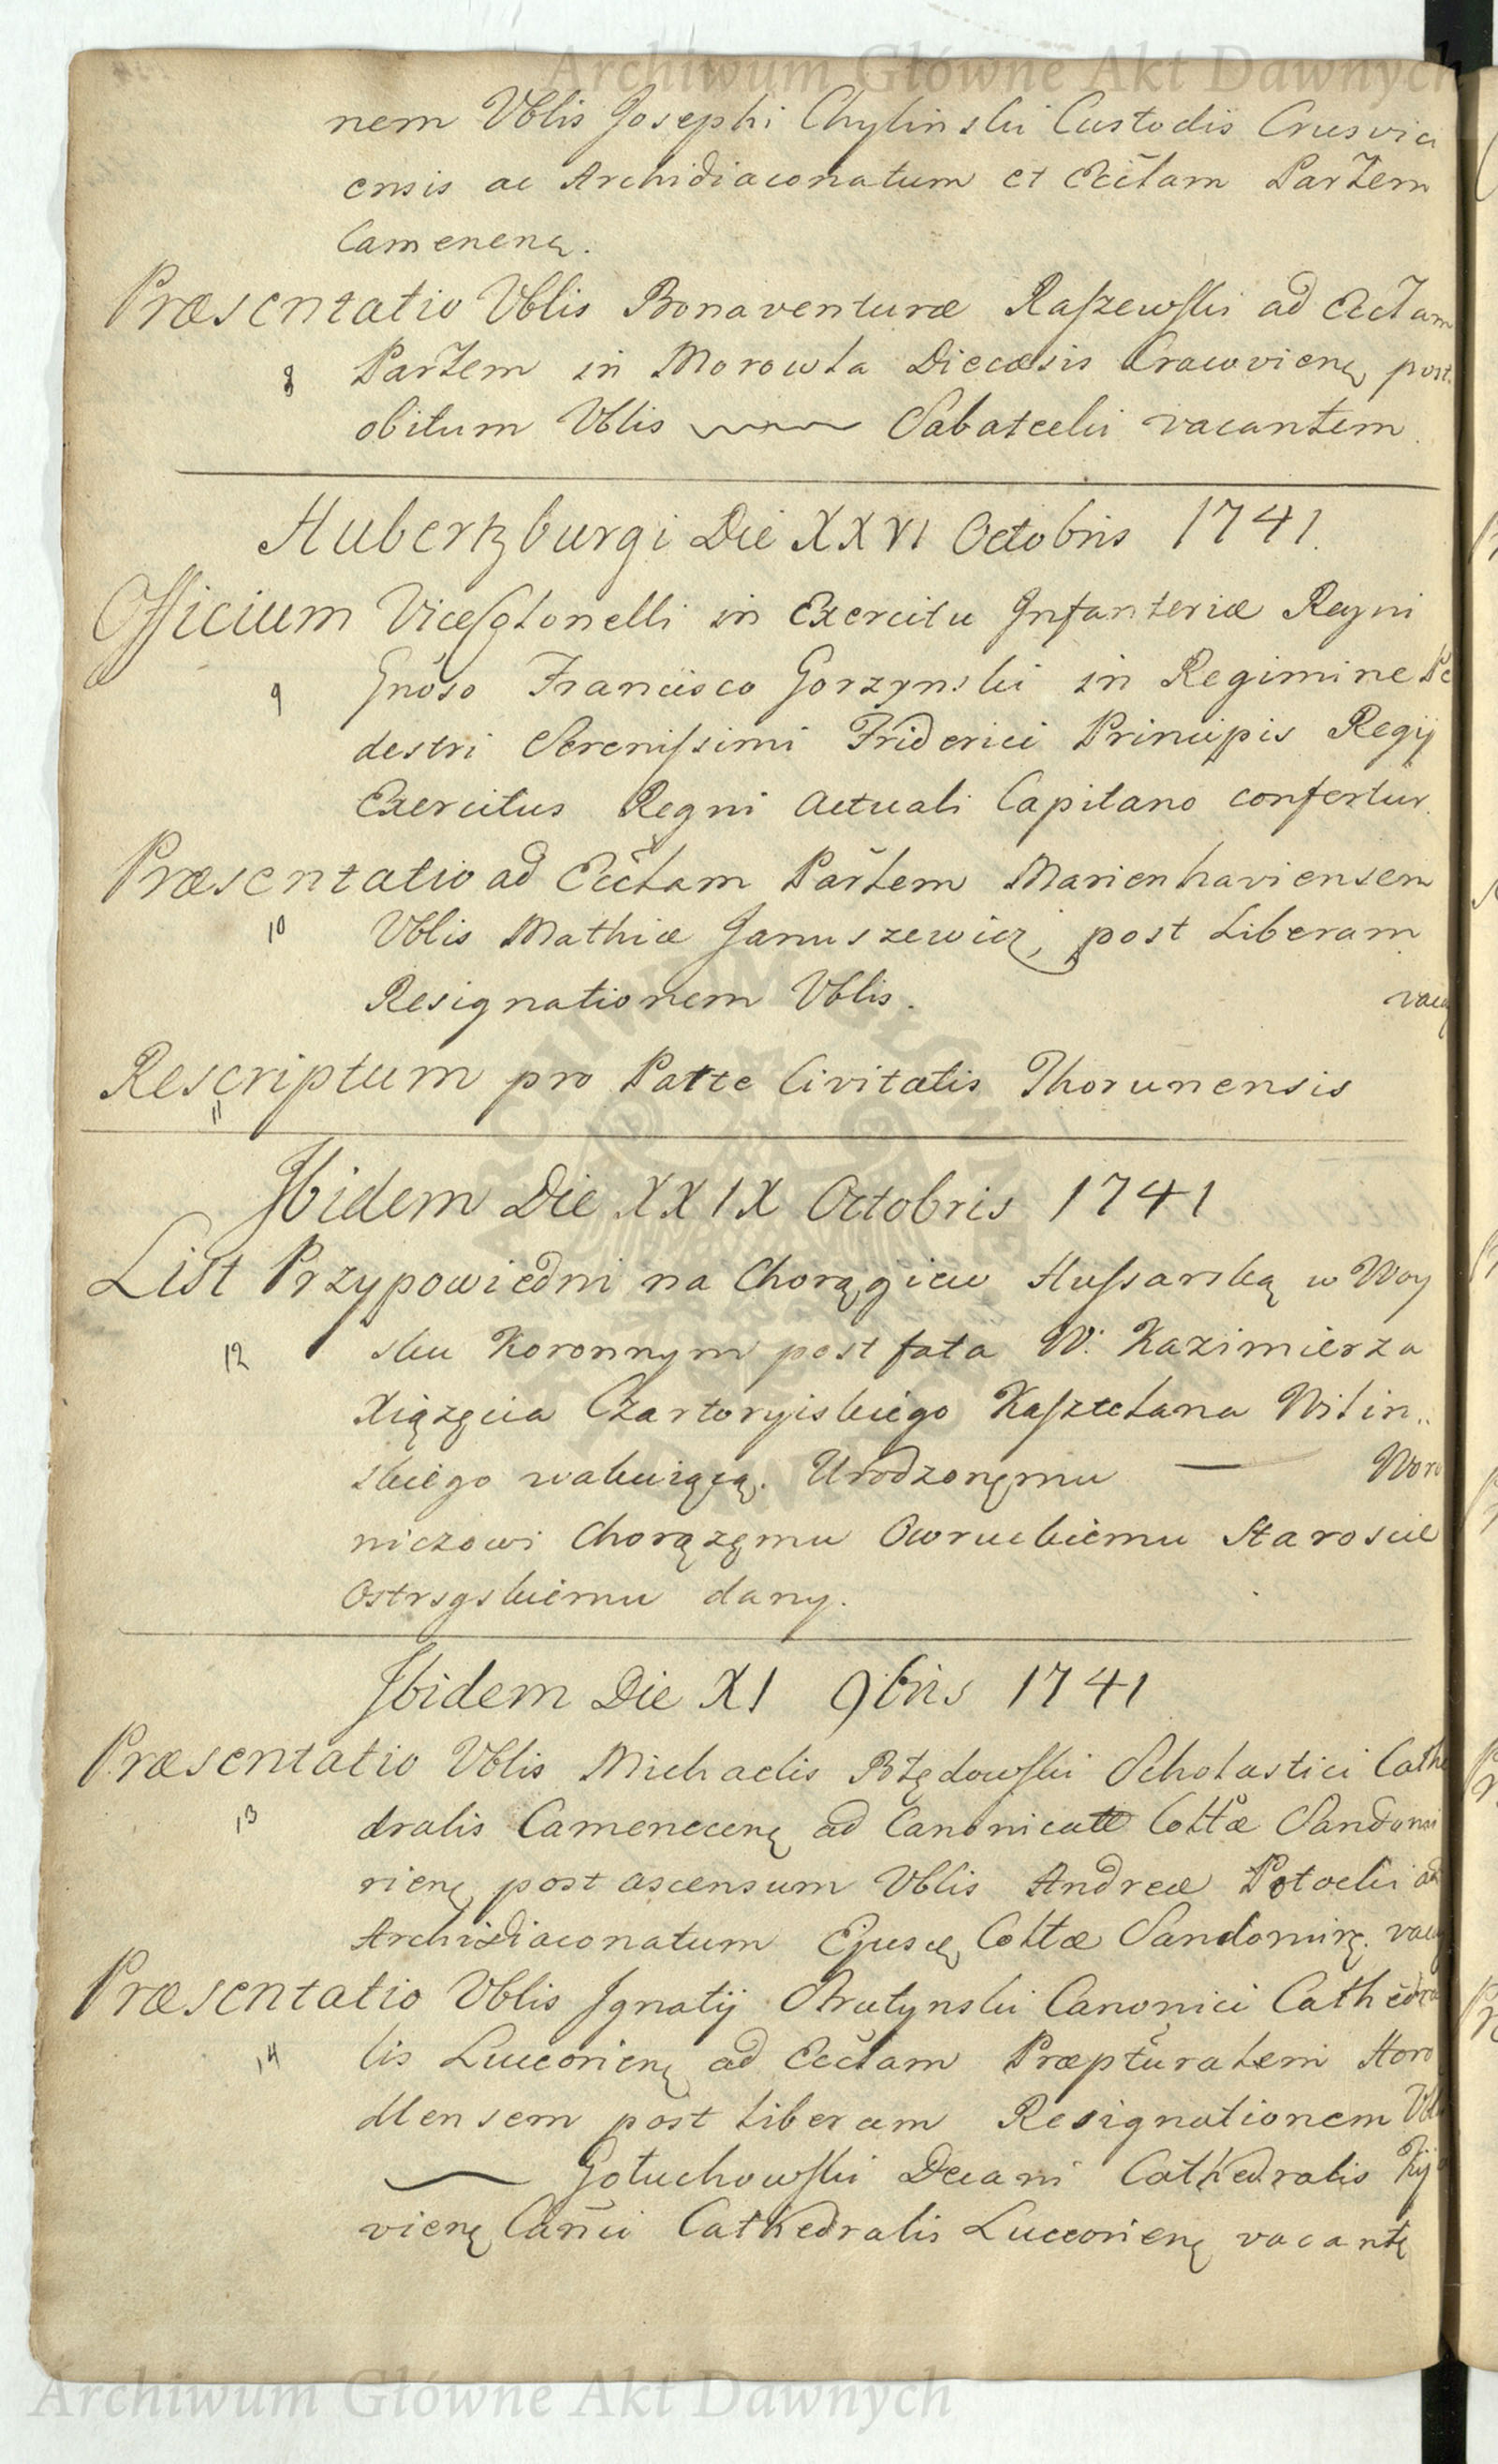 Archiwum Główne Akt Dawnych
nem Vblis Josephi Chylinski Custodis Crusvici
ensis ac Archidiaconatum et Ecčlam Parłem
Camenenę.
Præsentatio Vblis Bonaventuræ Raszewski ad Eccłam
8 Parłem in Morowla Diecæsis Cracovienę post
obitum Vblis Sabatecki vacantem.
Hubertzburgi Die XXVI Octobris 1741.
Officium ViceColonelli in Exercitu Infanteriæ Regni
9 Gnöso Francisco Gorzynski in Regimine Pe
destri Serenissimi Friderici Principis Regij
Exercitus Regni Actuali Capitano confertur.
Præsentatio ad Ecčlam Pařlem Marienhaviensem
10 Vblis Mathiæ Januszewicz, post Liberam
Resignationem Vblis. vacą
Rescriptum pro Parte Civitatis Thorunensis
11
Ibidem Die XXIX Octobris 1741
List Przypowiedni na Chorągiew Hussarską w Woy
12 sku Koronnym post fata W. Kazimierza
Xiązęcia Czartoryiskiego Kasztelana Wilin„
skiego wakuiącą. Urodzonęmu — Woro
niczowi Chorązęmu Owruckiemu Staroscie
Ostrsgskiemu dany.
Ibidem Die XI 9bris 1741
Præsentatio Vblis Michaelis Błędowski Scholastici Cathe
13 dralis Camenecenę ad Canonicatū Collæ Sandomi
rienę post ascensum Vblis Andreæ Potocki ad
Archidiaconatum Ejusdę Collæ Sandomirę. vacą
Præsentatio Vblis Ignatij Orutynski Canonici Cathedra
14 lis Luceorienę ad Ecčlam Præpťuralem Horo
dlensem post Liberam Resignationem Vblis
Gołuchowski Decani Cathedralis Kij
vienę Cańci Cathedralis Luceorienę vacantę
Archiwum Główne Akt Dawnych